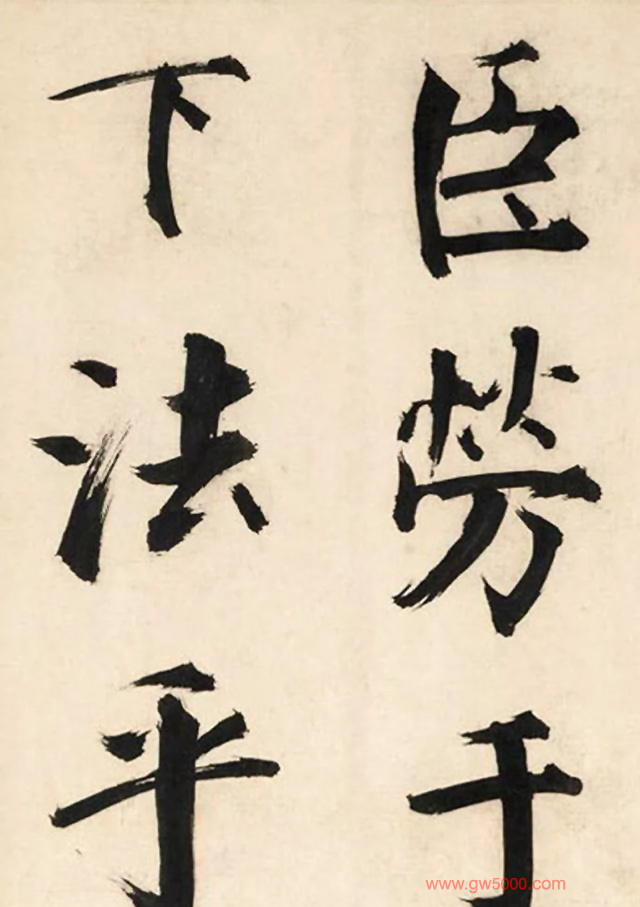 臣勞于
下法乎
www.gw5000.com